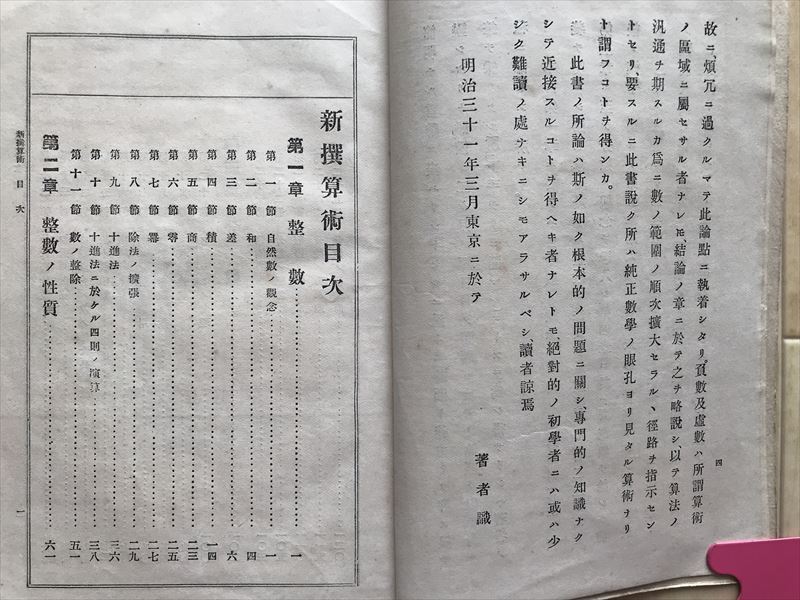 四
故ニ、煩冗ニ過クルマテ此論點ニ執着シタリ。負數及虛數ハ所謂算術
ノ區域ニ屬セサル者ナレモ結論ノ章ニ於テ之ヲ略說シ、以テ算法ノ
汎通ヲ期スルカ爲ニ數ノ範圍ノ順次擴大セラルヽ徑路ヲ指示セン
トセリ、要スルニ此書說ク所ハ純正數學ノ眼孔ヨリ見タル算術ナリ
ト謂フコトヲ得ンカ。
此書ノ所論ハ斯ノ如ク根本的ノ問題ニ關シ、專門的ノ知識ナク
シテ近接スルコトヲ得ヘキ者ナレトモ絕對的ノ初學者ニハ或ハ少
シク難讀ノ處ナキニシモアラサルベシ、讀者諒焉
明治三十一年三月東京ニ於テ
著者識
新撰算術目次
第一章 整數 一
第一節 自然數ノ觀念 一
第二節 和 四
第三節 差 六
第四節 積 一四
第五節 商 二三
第六節 零 二五
第七節 冪 二七
第八節 除法ノ擴張 二九
第九節 十進法 三六
第十節 十進法ニ於ケル四則ノ演算 三八
第十一節 數ノ整除 五一
第二章 整數ノ性質 六一
新撰算術 目次 一